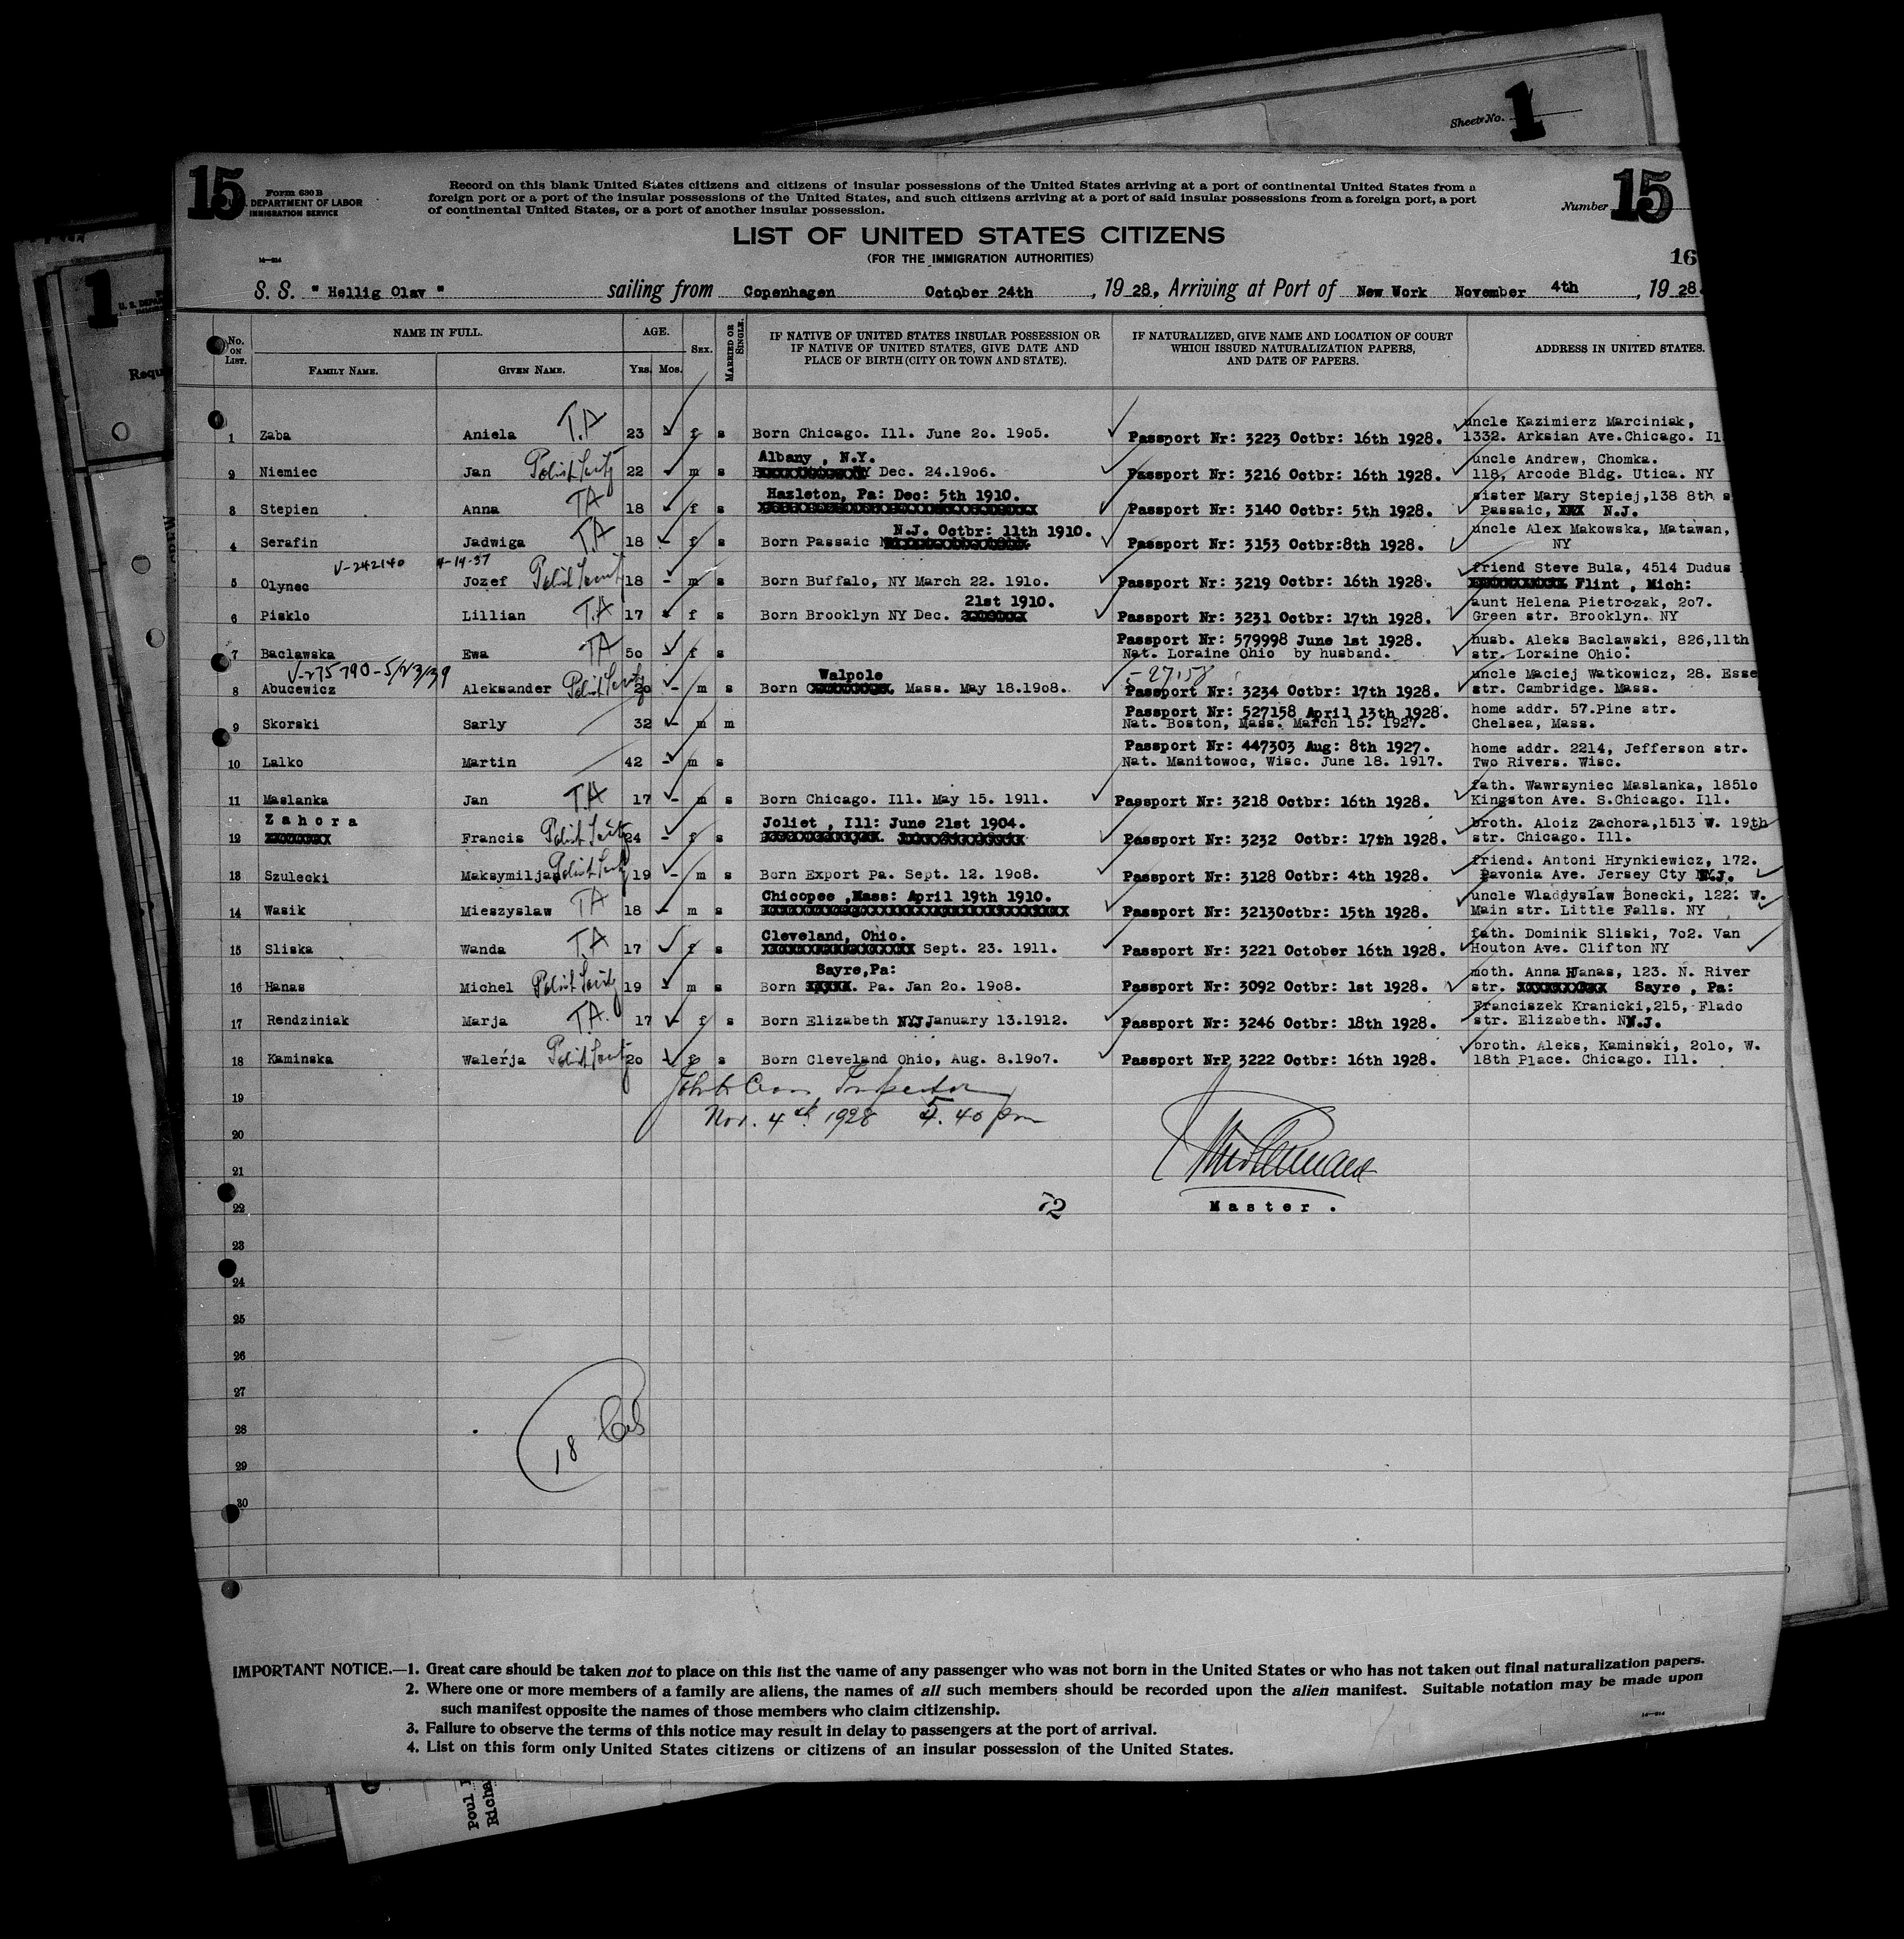 Sheet No. 1
15
Form 630 B
DEPARTMENT OF LABOR
IMMIGRATION SERVICE
Record on this blank United States citizens and citizens of insular possessions of the United States arriving at a port of continental United States from a
foreign port or a port of the insular possessions of the United States, and such citizens arriving at a port of said insular possessions from a foreign port, a port
of continental United States, or a port of another insular possession.
Number 15
LIST OF UNITED STATES CITIZENS
(FOR THE IMMIGRATION AUTHORITIES)
16
S. S. " Hellig Olav " sailing from Copenhagen October 24th, 19 28, Arriving at Port of New Work November 4th, 19 28.
1
No. ON LIST.
NAME IN FULL.
FAMILY NAME. GIVEN NAME.
AGE.
YRS. MOS.
SEX.
MARRIED OR SINGLE.
IF NATIVE OF UNITED STATES INSULAR POSSESSION OR
IF NATIVE OF UNITED STATES, GIVE DATE AND
PLACE OF BIRTH (CITY OR TOWN AND STATE).
IF NATURALIZED, GIVE NAME AND LOCATION OF COURT
WHICH ISSUED NATURALIZATION PAPERS,
AND DATE OF PAPERS.
ADDRESS IN UNITED STATES.
Requ
uncle Kazimierz Marciniak,
1 Zaba Aniela T.A 23 - f s Born Chicago. Ill. June 2o. 19o5. Passport Nr: 3223 Octbr: 16th 1928. 1332. Arksian Ave.Chicago. Il
Albany , N.Y. uncle Andrew, Chomka.
2 Niemiec Jan 22 - m s NY Dec. 24.19o6. Passport Nr: 3216 Octbr: 16th 1928. 118, Arcode Bldg. Utica. NY
Hazleton, Pa: Dec: 5th 1910. sister Mary Stepiej,138 8th s
3 Stepien Anna TA 18 - f s Passport Nr: 3140 Octbr: 5th 1928. Passaic, XXX N.J.
N.J. Octbr: 11th 1910. uncle Alex Makowska, Matawan,
4 Serafin Jadwiga T.A 18 - f s Born Passaic Passport Nr: 3153 Octbr:8th 1928. NY
V-242140 4-14-37 friend Steve Bula, 4514 Dudus
5 Olynec Jozef 18 - m s Born Buffalo, NY March 22. 191o. Passport Nr: 3219 Octbr: 16th 1928. Flint , Mich:
21st 1910. aunt Helena Pietrczak, 2o7.
6 Pisklo Lillian T.A 17 - f s Born Brooklyn NY Dec. Passport Nr: 3231 Octbr: 17th 1928. Green str. Brooklyn. NY
Passport Nr: 579998 June 1st 1928. husb. Aleks Baclawski, 826,11th
7 Baclawska Ewa TA 5o - f s Nat. Loraine Ohio by husband. str. Loraine Ohio.
V-275790-5/23/39 Walpole uncle Maciej Watkowicz, 28. Esse
8 Abucewicz Aleksander 2o - m s Born Mass. May 18.19o8. Passport Nr: 3234 Octbr: 17th 1928. str. Cambridge. Mass.
Passport Nr: 527158 April 13th 1928. home addr. 57.Pine str.
9 Skorski Sarly 32 - m m Nat. Boston, Mass. March 15. 1927. Chelsea, Mass.
Passport Nr: 447303 Aug: 8th 1927. home addr. 2214, Jefferson str.
10 Lalko Martin 42 - m s Nat. Manitowoc, Wisc. June 18. 1917. Two Rivers. Wisc.
fath. Wawrsyniec Maslanka, 1851o
11 Maslanka Jan T.A 17 - m s Born Chicago. Ill. May 15. 1911. Passport Nr: 3218 Octbr: 16th 1928. Kingston Ave. S.Chicago. Ill.
Zahora Joliet , Ill: June 21st 1904. broth. Aloiz Zachora,1513 W. 19th
12 Francis 24 - f s Passport Nr: 3232 Octbr: 17th 1928. str. Chicago. Ill.
friend. Antoni Hrynkiewicz, 172.
13 Szulecki Maksymiljan 19 - m s Born Export Pa. Sept. 12. 19o8. Passport Nr: 3128 Octbr: 4th 1928. Pavonia Ave. Jersey Cty N.J.
Chicopee ,Mass: April 19th 1910. uncle Wladdyslaw Bonecki, 122. W.
14 Wasik Mieszyslaw TA 18 - m s Passport Nr: 3213Octbr: 15th 1928. Main str. Little Falls. NY
Cleveland, Ohio. fath. Dominik Sliski, 7o2. Van
15 Sliska Wanda T.A 17 f s Sept. 23. 1911. Passport Nr: 3221 October 16th 1928. Houton Ave. Clifton NY
Sayre,Pa: moth. Anna Hanas, 123. N. River
16 Hanas Michel 19 - m s Born Pa. Jan 2o. 19o8. Passport Nr: 3092 Octbr: 1st 1928. str. Sayre , Pa:
Franciszek Kranicki,215, Flado
17 Rendziniak Marja T.A. 17 - f s Born Elizabeth N.J. January 13.1912. Passport Nr: 3246 Octbr: 18th 1928. str. Elizabeth. N.J.
broth. Aleks, Kaminski, 2o1o, W.
18 Kaminska Walerja 20 - f s Born Cleveland Ohio, Aug. 8.19o7. Passport NrP 3222 Octbr: 16th 1928. 18th Place. Chicago. Ill.
19
Inspector
Nov. 4th 1928 5.40 pm
20
21
22
72
Master .
23
24
25
26
27
28
18
29
30
IMPORTANT NOTICE.—1. Great care should be taken not to place on this list the name of any passenger who was not born in the United States or who has not taken out final naturalization papers.
2. Where one or more members of a family are aliens, the names of all such members should be recorded upon the alien manifest. Suitable notation may be made upon
such manifest opposite the names of those members who claim citizenship.
3. Failure to observe the terms of this notice may result in delay to passengers at the port of arrival.
4. List on this form only United States citizens or citizens of an insular possession of the United States.
Poul
Richa